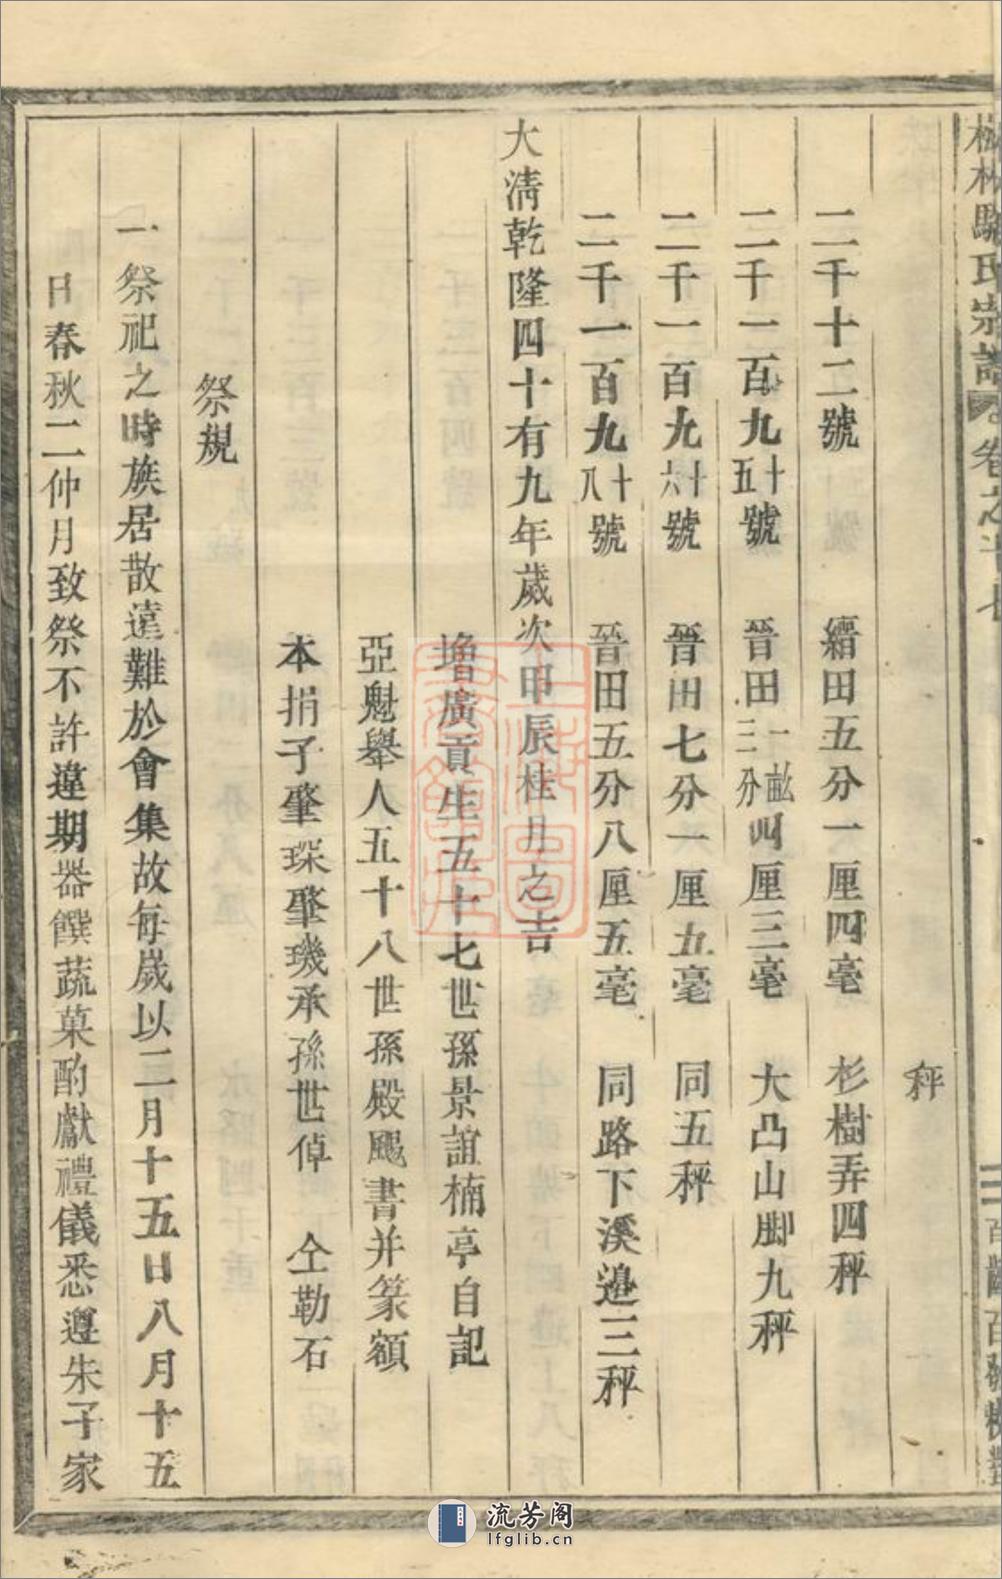 林駱氏宗譜 卷之十七
秤
二千十二號 繻田五分一厘四毫 杉樹弄四秤
二千一百九十五號 晉田一畝二分四厘三毫 大凸山脚九秤
二千一百九十六號 晉田七分一厘九毫 同五秤
二千一百九十八號 晉田五分八厘五毫 同路下溪邉三秤
大淸乾隆四十有九年歲次甲辰桂月之吉
增廣貢生五十七世孫景誼楠亭自記
亞魁舉人五十八世孫殿颺書并篆額
本捐子肇琛肇璣承孫世倬 仝勒石
祭規
一祭祀之時族居散遠難於會集故每歲以二月十五日八月十五
日春秋二仲月致祭不許違期器饌蔬菓酌獻禮儀悉遵朱子家
流芳阁
lfglib.cn